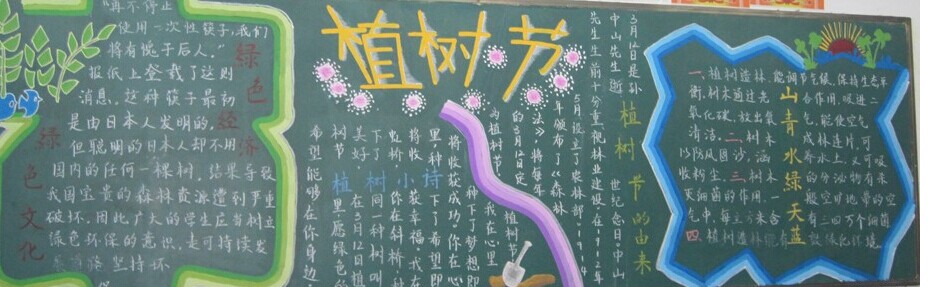 "再不停止
使用一次性筷子，我们
将有愧于后人。"
报纸上登载了这则
消息，这种筷子最初
是由日本人发明的，
但聪明的日本人却不用
国内的任何一棵树，结果导致
我国宝贵的森林资源遭到严重
破坏。因此广大的学生应当树立
绿色环保的意识，是可持续发
坚持环
绿色经济
绿色文化
植树节
植树节的由来
3月12日是孙
中山先生逝世纪念日。中山
先生生前十分重视林业建设在1912年
5月设立了农林部，
年颁布了《森林
法》，将每年
的3月12日定
为植树节。
植树小诗
植树节
我在心里
种下了梦想即
将收获成功。你在心
里种下了希望即
将收获幸福。我在
你在斜桥，种
下了同一种树叫
美好。在3月12日植
树节里愿绿色的
希望能够在你身边
山青水绿天蓝
一、植树造林能调节气候，保持生态平
衡。树木通过光合作用，吸进二
氧化碳，放出氧气，使空气
清洁。
二、树木成林连片，可
以防风固沙，涵养水土，
三、树木的分泌物
灭细菌的作用。一般空旷地带的空
气中，每立方米含有三四万个细菌
四、植树造林能